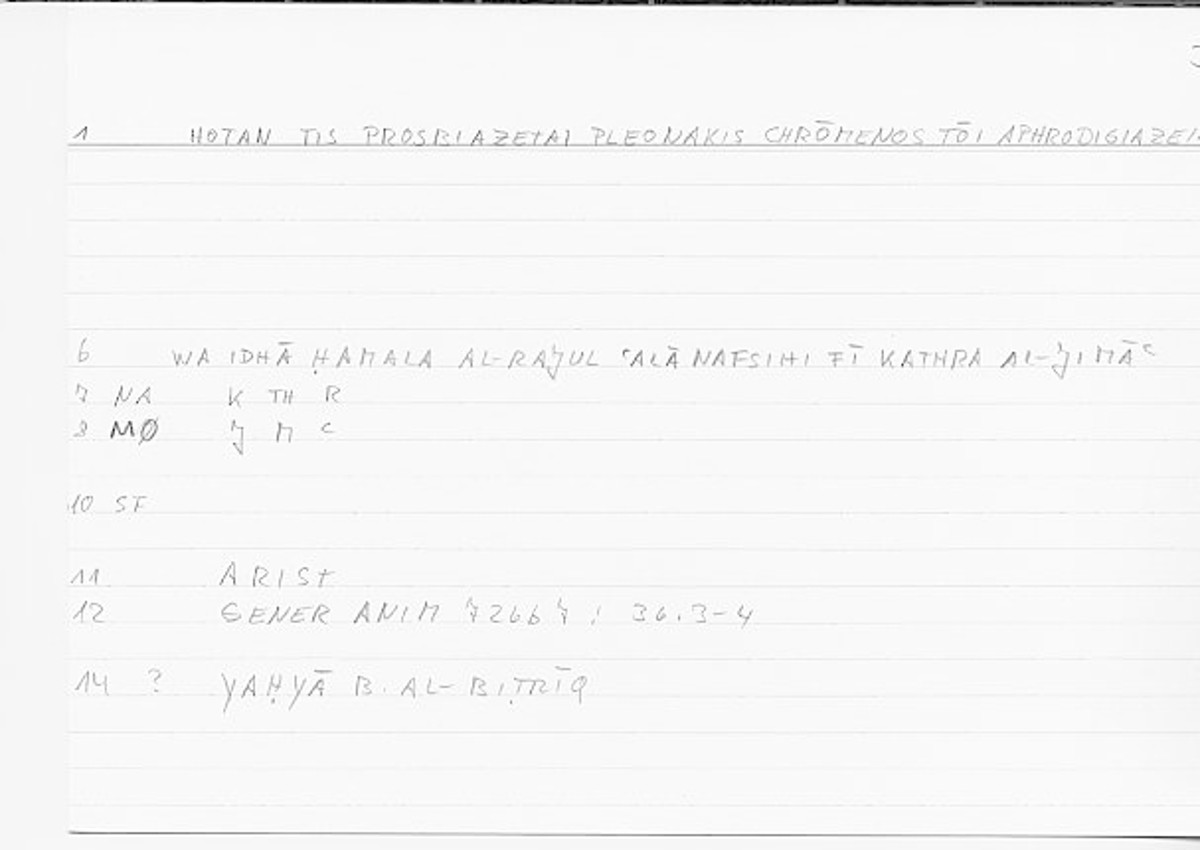 1 HOTAN TIS PROSBIAZETAI PLEONAKIS CHRŌMENOS TŌI APHRODIGIAZEI
6 WA IDHĀ ḤAMALA AL-RAJUL ʿALĀ NAFSIHI FĪ KATHRA AL-JIMĀʿ
7 NA K TH R
8 MØ J M ʿ
10 SF
11 ARIST
12 GENER ANIM 726b7 ; 36.3-4
14 ? YAḤYĀ B. AL-BIṬRĪQ